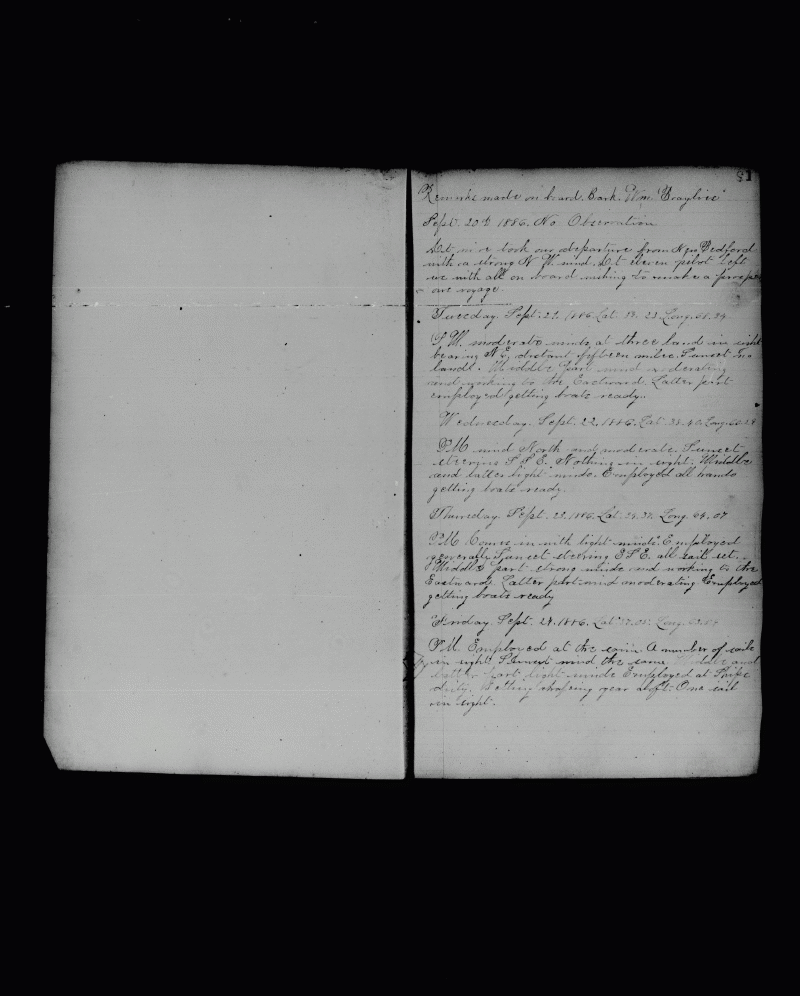 Remarks made on board Bark. Wm.
Sept. 20th 1886. No Observation
At nine took our departure from New Bedford
with a strong N. W. wind. At eleven pilot left
us with all on board wishing to make a prosper
ous voyage.
Tuesday. Sept. 21. 1886. Lat. Long.
S. W. moderate winds, at three land in sight
bearing N E, distant fifteen miles. Sunset no
land. Middle part wind moderating
and working to the Eastward. Latter part
employed getting boats ready.
Wednesday. Sept. 22. 1886. Lat. Long.
PM wind North and moderate. Sunset
steering S S E. Nothing in sight. Middle
and latter light winds. Employed all hands
getting boats ready.
Thursday. Sept. 23. 1886. Lat. Long. 64.07
PM. Comes in with light winds. Employed
generally. Sunset steering E S E. all sail set.
Middle part strong winds and working to the
Eastward. Latter part wind moderating Employed
getting boats ready
Friday. Sept. 24. 1886. Lat. Long.
PM. Employed at the same. A number of sails
in sight. Sunset wind the same. Middle and
latter part light winds Employed at Ships
duty. Getting gear aloft. One sail
in sight.